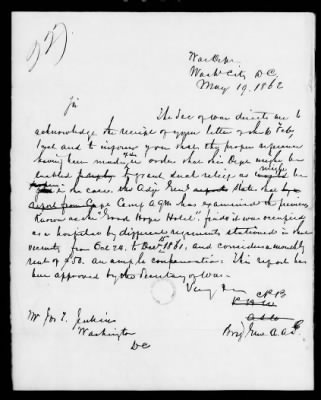 War Dept.
Wash. City, D.C.
May 19, 1862
Sir
The Sec of war directs me to
acknowledge the receipt of your letter of the 6 Feby
last and to inform you that the proper
having been made, in order that this Dept might be
enabled to grant such relief as might be
in the case. the Adjt Genl states that
report from Capt Camp AQM has examined the premises
Known as the "Good Hope Hotel" finds it was occupied
as a hospital by different regiments stationed in that
vicinity from Oct 24 to Decr 1861, and considers a monthly
rent of $50. an ample compensation. This report has
been approved by the Secretary of War.
Very
Brig Genl A A G
Mr Jos E. Jenkins
Washington
DC